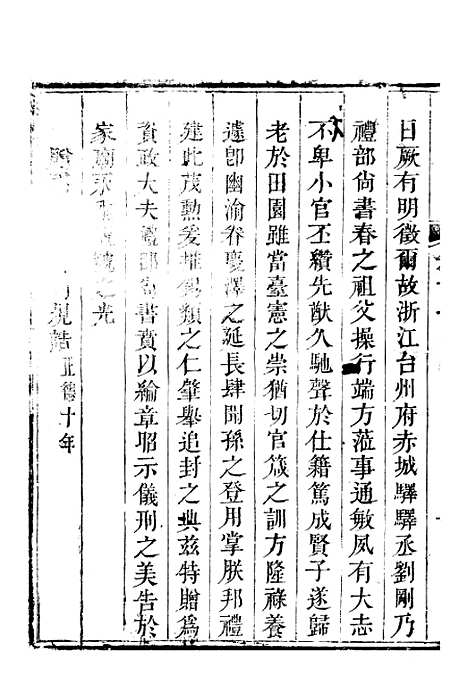 日厥有明徵爾故浙江台州府赤城驛驛丞劉剛乃
禮部尚書春之祖父操行端方蒞事通敏夙有大志
不卑小官丕纘先猷久馳聲於仕籍篤成賢子遂歸
老於田園雖當臺憲之崇猶切官箴之訓方隆祿養
遽卽幽渝眷慶澤之延長肆聞孫之登用掌朕邦禮
建此茂勳爰推錫類之仁肇舉追封之典茲特贈爲
資政大夫禮部尚書賁以綸章昭示儀刑之美告於
家廟永
之光
誥 正德十年